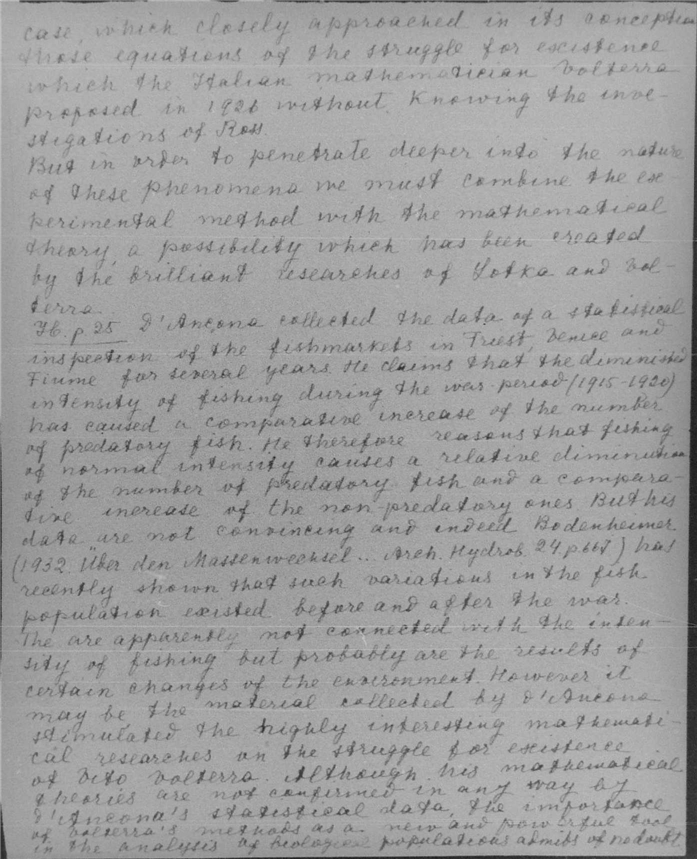 case, which closely approached in its conception
those equations of the struggle for existence
which the Italian mathematician Volterra
proposed in 1926 without knowing the inve-
stigations of Ross.
But in order to penetrate deeper into the nature
of these phenomena we must combine the ex-
perimental method with the mathematical
theory, a possibility which has been created
by the brilliant researches of Lotka and Vol-
terra.
p 25 D'Ancona collected the data of a statistical
inspection of the fishmarkets in Triest, Venice and
Fiume for several years. He claims that the diminished
intensity of fishing during the war-period (1915-1920)
has caused a comparative increase of the number
of predatory fish. He therefore reasons that fishing
of normal intensity causes a relative diminution
of the number of predatory fish and a compara-
tive increase of the non-predatory ones. But his
data are not convincing and indeed Bodenheimer
(1932 Über den Massenwechsel... Arch. Hydrob. 24 p 667) has
recently shown that such variations in the fish
population existed before and after the war.
The are apparently not connected with the inten-
sity of fishing but probably are the results of
certain changes of the environment. However it
may be, the material collected by d'Ancona
stimulated the highly interesting mathemati-
cal researches on the struggle for existence
of Vito Volterra. Although his mathematical
theories are not confirmed in any way by
d'Ancona's statistical data, the importance
of Volterra's methods as a new and powerful tool
in the analysis of biological populations admits of no doubt